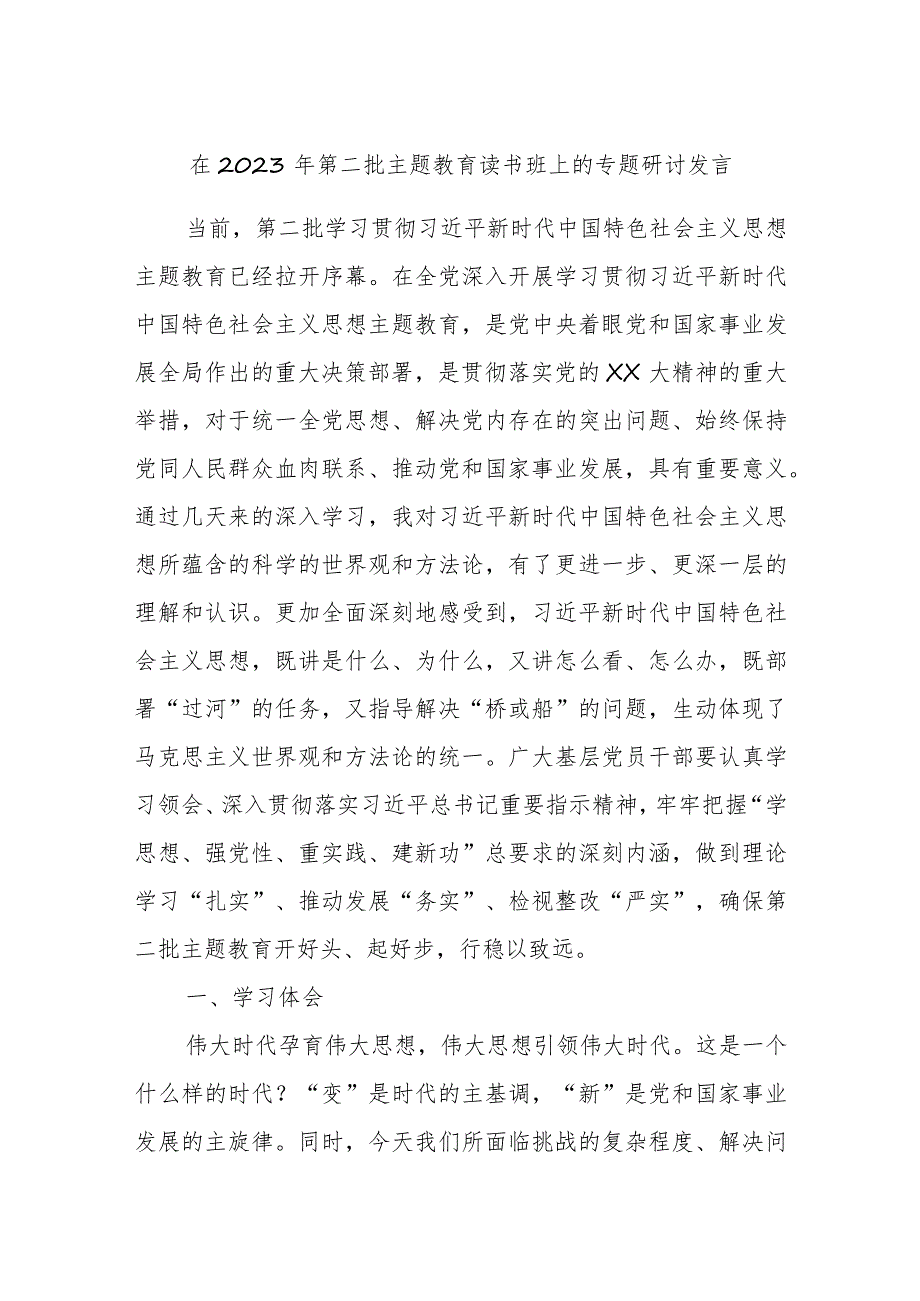 在2023年第二批主题教育读书班上的专题研讨发言
当前，第二批学习贯彻习近平新时代中国特色社会主义思想
主题教育已经拉开序幕。在全党深入开展学习贯彻习近平新时代
中国特色社会主义思想主题教育，是党中央着眼党和国家事业发
展全局作出的重大决策部署，是贯彻落实党的XX大精神的重大
举措，对于统一全党思想、解决党内存在的突出问题、始终保持
党同人民群众血肉联系、推动党和国家事业发展，具有重要意义。
通过几天来的深入学习，我对习近平新时代中国特色社会主义思
想所蕴含的科学的世界观和方法论，有了更进一步、更深一层的
理解和认识。更加全面深刻地感受到，习近平新时代中国特色社
会主义思想，既讲是什么、为什么，又讲怎么看、怎么办，既部
署“过河”的任务，又指导解决“桥或船”的问题，生动体现了
马克思主义世界观和方法论的统一。广大基层党员干部要认真学
习领会、深入贯彻落实习近平总书记重要指示精神，牢牢把握“学
思想、强党性、重实践、建新功”总要求的深刻内涵，做到理论
学习“扎实”、推动发展“务实”、检视整改“严实”，确保第
二批主题教育开好头、起好步，行稳以致远。
一、学习体会
伟大时代孕育伟大思想，伟大思想引领伟大时代。这是一个
什么样的时代？“变”是时代的主基调，“新”是党和国家事业
发展的主旋律。同时，今天我们所面临挑战的复杂程度、解决问